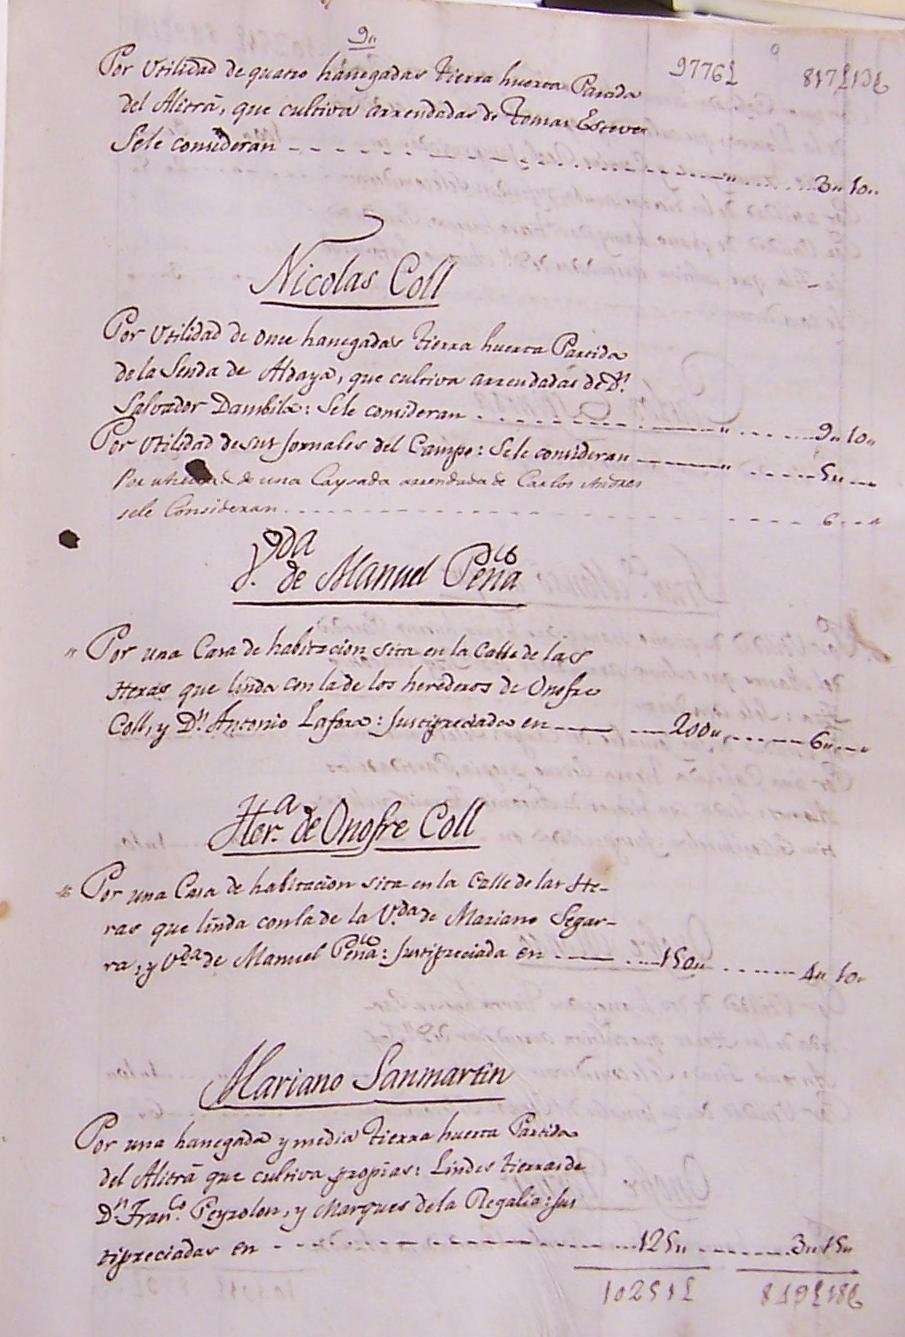 9„
9776£ 817£13£
Por Utilidad de quatro hanegadas tierra huerta Partida
del Alitrã, que cultiva arrendadas de Tomas Estever
Sele consideran - - - - „ - - - - 3„ 10„
Nicolas Coll
Por Utilidad de once hanegadas tierra huerta Partida
de la Senda de Aldaya, que cultiva arrendadas de Dn.
Salvador Dambila: Sele consideran - - - - „ - - - - 9„ 10„
Por Utilidad de sus Jornales del Campo: Sele consideran - - - - „ - - - - 5„
Por utilidad de una Caysada arrendada de Carlos Andres
sele Consideran - - - - 6
V.da de Manuel Peña
„ Por una Casa de habitacion sita en la Calle de las
Heras que linda con la de los herederos de Onofre
Coll, y Dn. Antonio Lafora: Justipreciada en - - - - 200„ - - - - 6„
Her.a de Onofre Coll
Por una Casa de habitacion sita en la Calle de las He-
ras que linda con la de la V.da de Mariano Segar-
ra, y V.da de Manuel Peña: Justipreciada en - - - - 150„ - - - - 4„ 10„
Mariano Sanmartin
Por una hanegada y media tierra huerta Partida
del Alitrã que cultiva propias: Lindes tierras de
Dn. Franco. Peyrolon, y Marques de la Regalia: Jus
tipreciadas en - - - - 125„ - - - - 3„ 15„
10251£ 849£18£